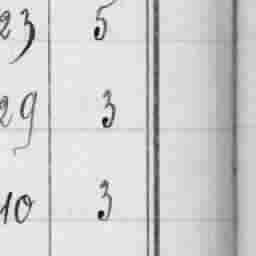 23 5
29 3
10 3